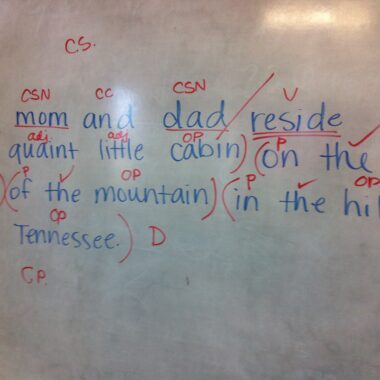 C.S.
CSN CC CSN V
mom and dad / reside
adj. adj. OP P ✓
quaint little cabin) (on the
P ✓ OP P ✓ OP
) (of the mountain) (in the hi
OP
Tennessee.) D
C.P.